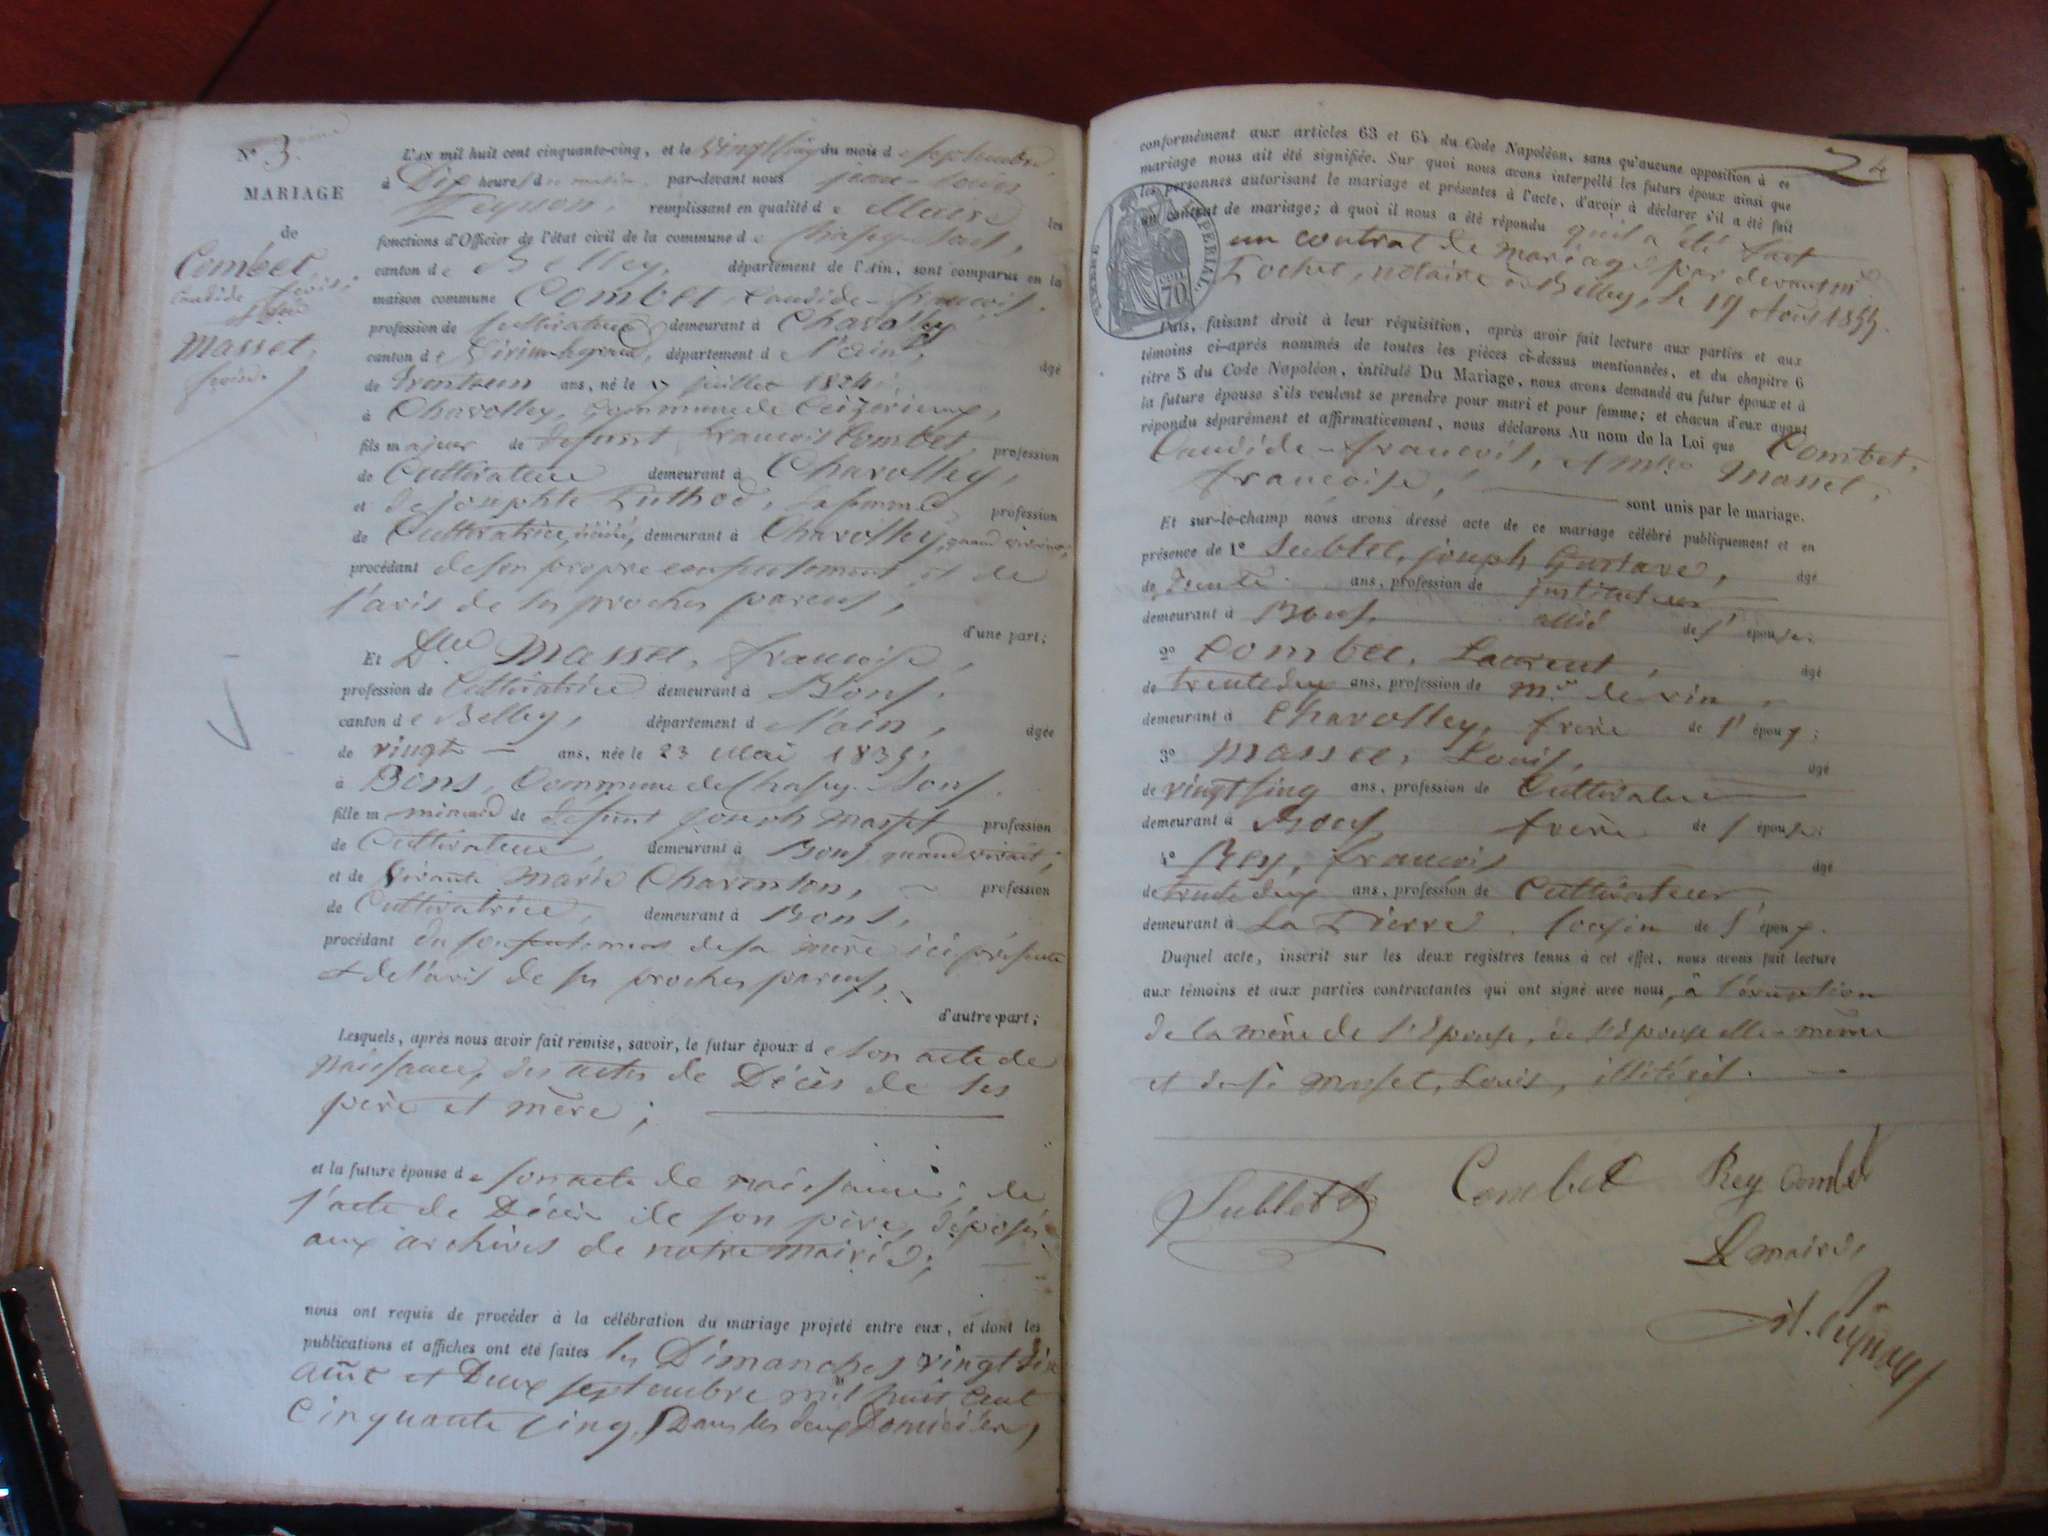 N° 3.
MARIAGE
de
Combet
Candide françois
Masset,
L'AN mil huit cent cinquante-cinq, et le vingt cinq du mois de septembre
à Dix heures du matin, par-devant nous jean-Louis
Peysson, remplissant en qualité de Maire les
fonctions d'Officier de l'état civil de la commune de Chasey-Bons,
canton de Belley, département de l'Ain, sont comparus en la
maison commune Combet, Candide-françois.
profession de Cultivateur demeurant à Charolley
canton de Virieu-le-grand, département de l'ain, âgé
de trente un ans, né le 17 juillet 1824
à Charolley, Commune de Ceizérieux,
fils majeur de defunt françois Combet, profession
de Cultivateur demeurant à Charolley,
et de josephte Luthod, sa femme profession
de Cultivatrice, demeurant à Charolley, quand vivaient,
procédant de son propre consentement et de
l'avis de ses proches parens,
d'une part;
Et Dlle Masset, françoise,
profession de Cultivatrice demeurant à Bons.
canton de Belley, département de l'ain, âgée
de vingt ans, née le 23 Mai 1835,
à Bons, Commune de Chasey-Bons.
fille mineure de defunt joseph Masset profession
de Cultivateur, demeurant à Bons quand vivait;
et de vivante marie Charenton, profession
de Cultivatrice, demeurant à Bons,
procédant du consentement de sa mère ici présente
et de l'avis de ses proches parens,
d'autre part;
Lesquels, après nous avoir fait remise, savoir, le futur époux de son acte de
naissance, des actes de Décès de ses
père et mère;
et la future épouse de son acte de naissance, de
l'acte de Décès de son père, déposés
aux archives de notre mairie;
nous ont requis de procéder à la célébration du mariage projeté entre eux, et dont les
publications et affiches ont été faites les Dimanches vingt six
août et Deux septembre mil huit cent
cinquante cinq, Dans les deux Domiciles,
conformément aux articles 63 et 64 du Code Napoléon, sans qu'aucune opposition à ce
mariage nous ait été signifiée. Sur quoi nous avons interpellé les futurs époux ainsi que
les personnes autorisant le mariage et présentes à l'acte, d'avoir à déclarer s'il a été fait
un contrat de mariage; à quoi il nous a été répondu qu'il a été fait
un contrat de mariage par devant me
Rochet, notaire à Belley, le 19 Août 1855.
TIMBRE IMPÉRIAL
70
Puis, faisant droit à leur réquisition, après avoir fait lecture aux parties et aux
témoins ci-après nommés de toutes les pièces ci-dessus mentionnées, et du chapitre 6
titre 5 du Code Napoléon, intitulé Du Mariage, nous avons demandé au futur époux et à
la future épouse s'ils veulent se prendre pour mari et pour femme; et chacun d'eux ayant
répondu séparément et affirmativement, nous déclarons Au nom de la Loi que Combet,
Candide-françois, et Masset,
françoise, sont unis par le mariage.
Et sur-le-champ nous avons dressé acte de ce mariage célébré publiquement et en
présence de 1° Sublet, joseph Gustave, âgé
de trente ans, profession de instituteur
demeurant à Bons, allié de l'épouse;
2° Combet, Laurent, âgé
de trente deux ans, profession de md de vin,
demeurant à Charolley, frère de l'époux;
3° Masset, Louis, âgé
de vingt cinq ans, profession de Cultivateur
demeurant à Bons, frère de l'épouse;
4° Rey, françois âgé
de trente deux ans, profession de Cultivateur
demeurant à La Pierre, Cousin de l'époux.
Duquel acte, inscrit sur les deux registres tenus à cet effet, nous avons fait lecture
aux témoins et aux parties contractantes qui ont signé avec nous, à l'exception
de la mère de l'Epouse, de l'Epouse elle-même
et de Masset, Louis, illitérés.
Sublet Combet Rey Combet
Le maire,